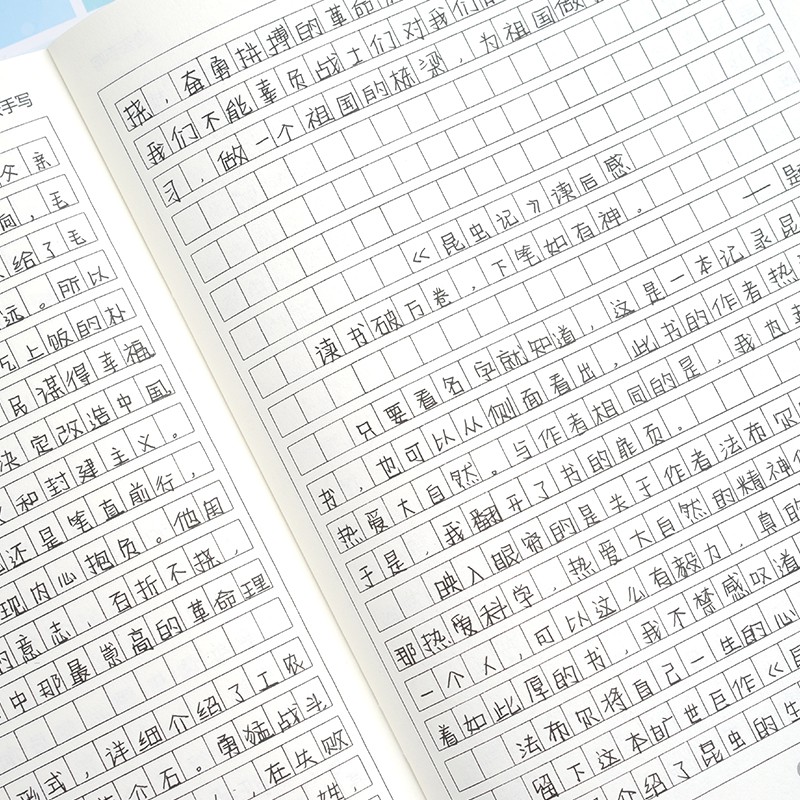 手写
父亲
向，毛
给了毛
远。所以
吃上饭的朴
民谋得幸福
决定改造中国
和封建主义。
还是笔直前行，
现内心抱负。他用
的意志，百折不挠，
中那最崇高的革命理
式，详细介绍了工农
个石。勇猛战斗
，在失败
姓，
挠，奋勇拼搏的革命
我们不能辜负战士们对我们
习，做一个祖国的栋梁，为祖国做
《昆虫记》读后感
读书破万卷，下笔如有神。 一是
只要看名字就知道，这是一本记录昆
书，也可以从侧面看出，此书的作者热
热爱大自然。与作者相同的是，我也热
于是，我翻开了书的扉页。
映入眼帘的是关于作者法布尔
那热爱科学，热爱大自然的精神
一个人，可以这么有毅力，真的
着如此厚的书，我不禁感叹道
法布尔将自己一生的心
留下这本旷世巨作《昆
介绍了昆虫的生